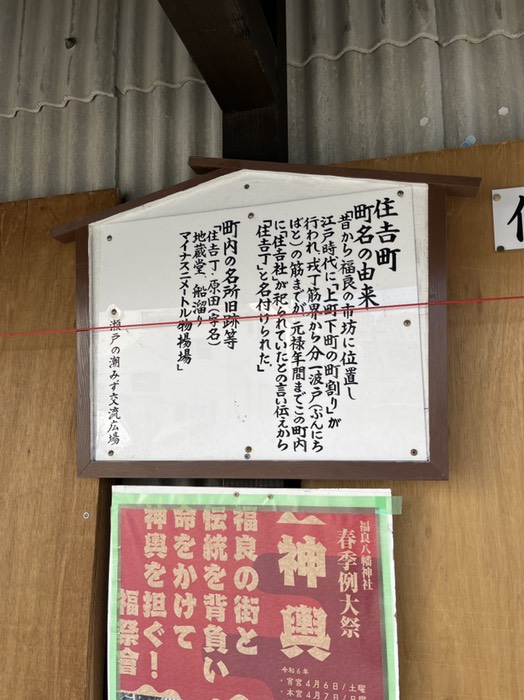 住吉町
町名の由来
昔から福良の市坊に位置し
江戸時代に「上町下町の町割り」が
行われ、戎丁筋界から分一波戸(ぶんにち
ばと)の筋までが、元禄年間までこの町内
に「住吉社」が祀られていたとの言い伝えから
「住吉丁」と名付けられた。
町内の名所旧跡等
「住吉丁・原田(字名)
地蔵堂、船溜り
マイナス二メートル物揚場」
瀬戸の潮みず交流広場
福良八幡神社
春季例大祭
神輿
令和6年
・宵宮4月6日/土曜
・本宮4月7日/日
福良の街と
伝統を背負い
命をかけて
神輿を担ぐ!
福祭會